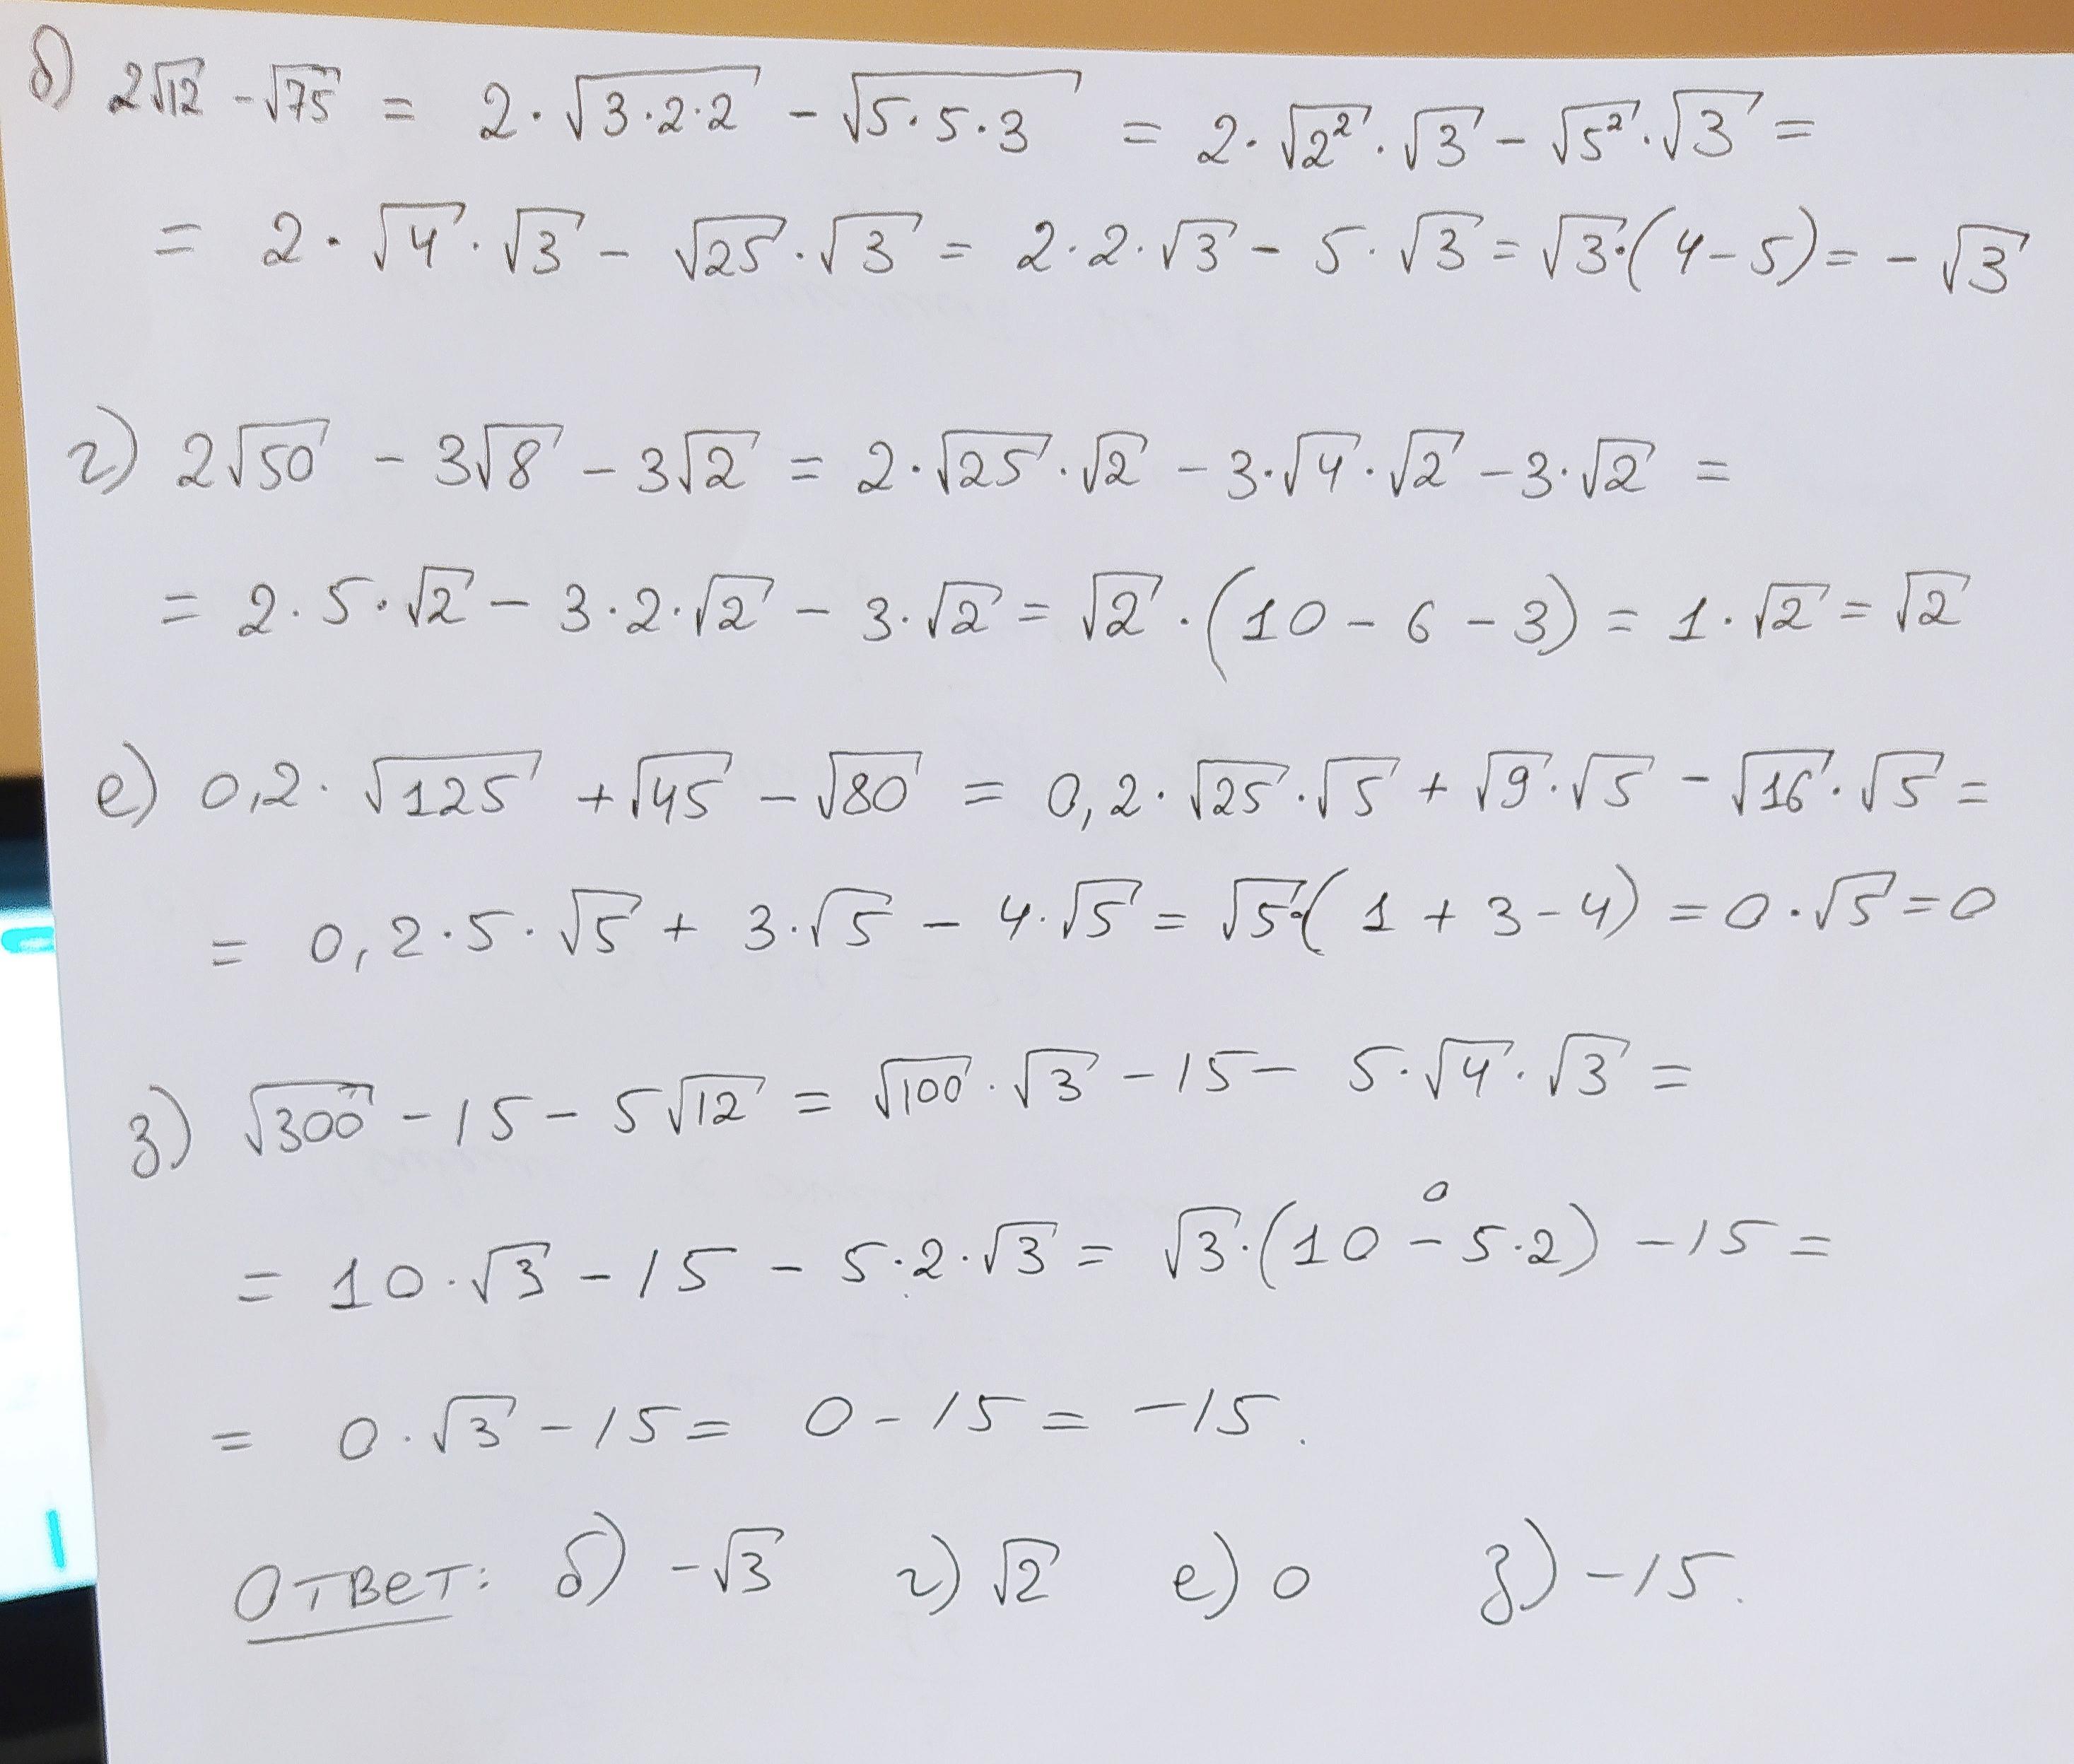 б) 2√12 - √75 = 2·√3·2·2 - √5·5·3 = 2·√2²·√3 - √5²·√3 =
= 2·√4·√3 - √25·√3 = 2·2·√3 - 5·√3 = √3·(4-5) = -√3
г) 2√50 - 3√8 - 3√2 = 2·√25·√2 - 3·√4·√2 - 3·√2 =
= 2·5·√2 - 3·2·√2 - 3·√2 = √2·(10 - 6 - 3) = 1·√2 = √2
е) 0,2·√125 + √45 - √80 = 0,2·√25·√5 + √9·√5 - √16·√5 =
= 0,2·5·√5 + 3·√5 - 4·√5 = √5·(1 + 3 - 4) = 0·√5 = 0
з) √300 - 15 - 5√12 = √100·√3 - 15 - 5·√4·√3 =
0
= 10·√3 - 15 - 5·2·√3 = √3·(10 - 5·2) - 15 =
= 0·√3 - 15 = 0 - 15 = -15.
Ответ: б) -√3 г) √2 е) 0 з) -15.